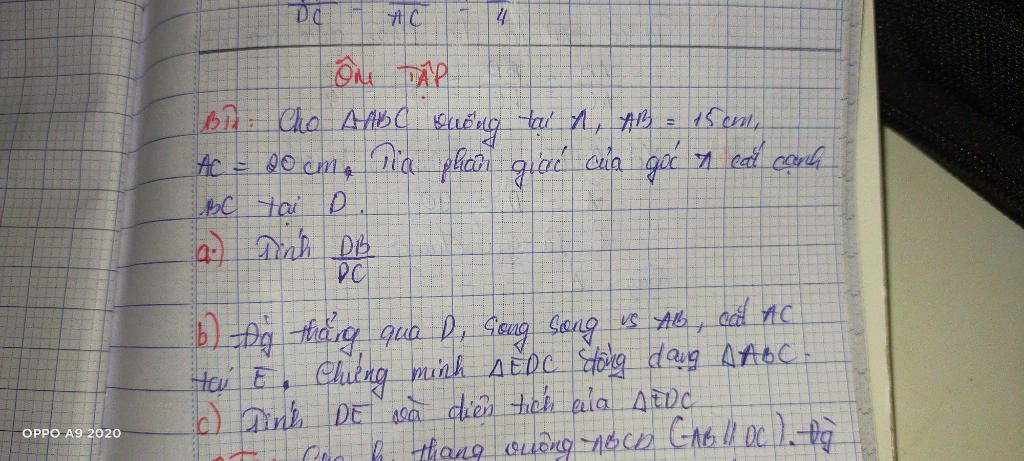 DC = AC = 4
ÔN TẬP
B1: Cho ΔABC vuông tại A, AB = 15cm,
AC = 20 cm. Tia phân giác của góc A cắt cạnh
BC tại D.
a) Tính DB
DC
b) Đg thẳng qua D, song song vs AB, cắt AC
tại E. Chứng minh ΔEDC đồng dạng ΔABC.
c) Tính DE và diện tích của ΔEDC
Cho h. thang vuông ABCD (AB // DC). Đg
OPPO A9 2020